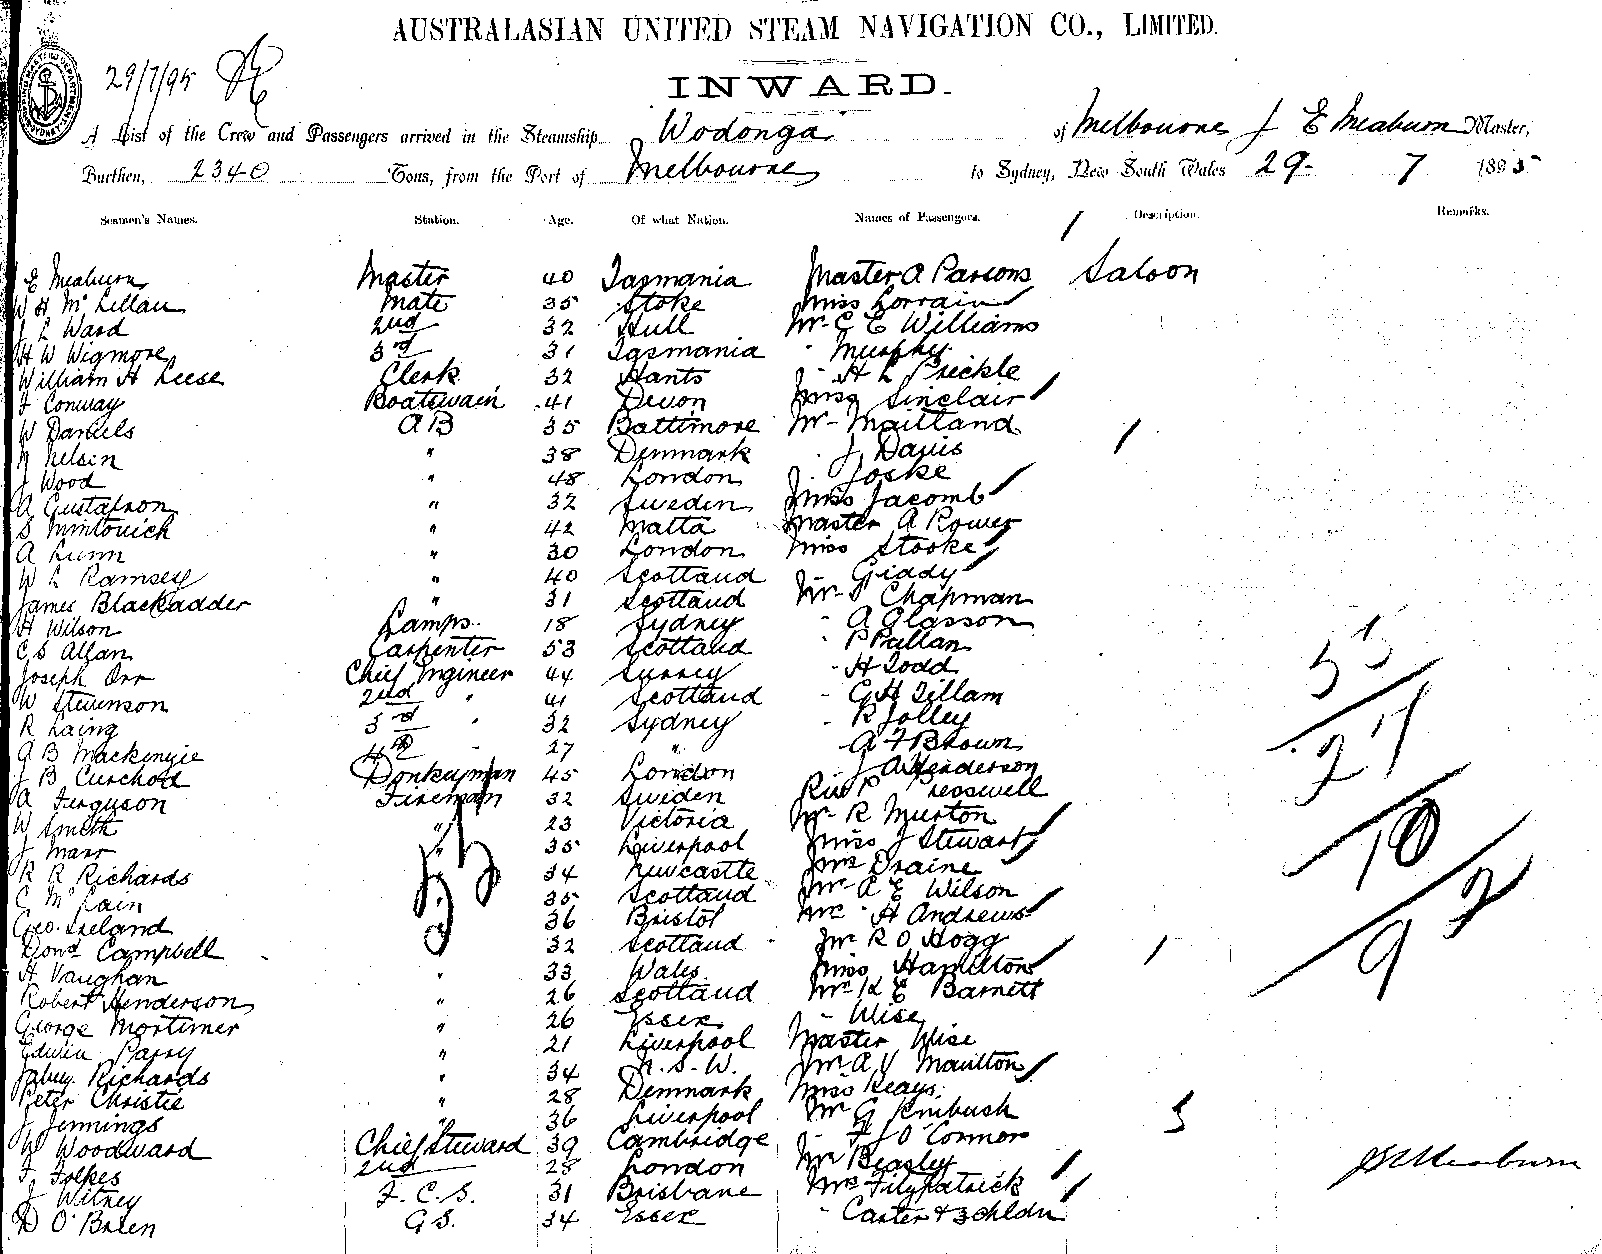 AUSTRALASIAN UNITED STEAM NAVIGATION CO., LIMITED.
29/7/95
INWARD.
A List of the Crew and Passengers arrived in the Steamship Wodonga of Melbourne J E Meaburn Master,
Burthen, 2340 Tons, from the Port of Melbourne to Sydney, New South Wales 29- 7 1895
Seamen's Names. Station. Age. Of what Nation. Names of Passengers. Description. Remarks.
E Meaburn Master 40 Tasmania Master A Parsons Saloon
W H McLellan Mate 35 Stoke Miss Lorrain
J L Ward 2nd 32 Hull Mr C E Williams
H W Wigmore 3rd 31 Tasmania " Murphy
William H Leese Clerk 32 Hants " H L Prickle
J Conway Boatswain 41 Devon Miss Sinclair
W Daniels A B 35 Baltimore Mr Maitland
N Nelsin " 38 Denmark " J Davis
J Wood " 48 London " Joske
A Gustafson " 32 Sweden Miss Jacomb
S Mintovich " 42 Malta Master A Rower
A Lunn " 30 London Miss Stooke
W L Ramsey " 40 Scotland " Giddy
James Blackadder " 31 Scotland Mr Chapman
H Wilson Lamps 18 Sydney " A Glasson
C S Allan Carpenter 53 Scotland " P Pullan
Joseph Orr Chief Engineer 44 Surrey " H Todd
W Stevenson 2nd " 41 Scotland " G H Tillam
R Laing 3rd " 32 Sydney " R Jolley
A B Mackenzie 4th " 27 " " A F Brown
J B Curchod Donkeyman 45 London J A Henderson
A Ferguson Fireman 32 Sweden Rev P Presswell
W Smith " 23 Victoria Mr R Murton
J Marr " 35 Liverpool Miss J Stewart
R R Richards 34 Newcastle Mrs Draine
C McLain 35 Scotland Mr A E Wilson
Geo. Ireland 36 Bristol Mrs H Andrews
Dond Campbell 32 Scotland Mr R O Hogg
H Vaughan " 33 Wales Miss Hamilton
Robert Henderson " 26 Scotland Mr K E Barnett
George Mortimer " 26 Essex " Wise
Edwin Parry " 21 Liverpool Master Wise
Jabez Richards " 34 N. S. W. Mr A V Maulton
Peter Christie " 28 Denmark Miss Keays
J Jennings " 36 Liverpool Mr G Kinbush
W Woodward Chief Steward 39 Cambridge " F J O'Connor
F Folkes 2nd 28 London Mr Beasley
J Witney F. C. S. 31 Brisbane Mrs Fitzpatrick
D O'Brien G S. 34 Essex " Carter & 3 chldn
55
27
10
92
3
J E Meaburn